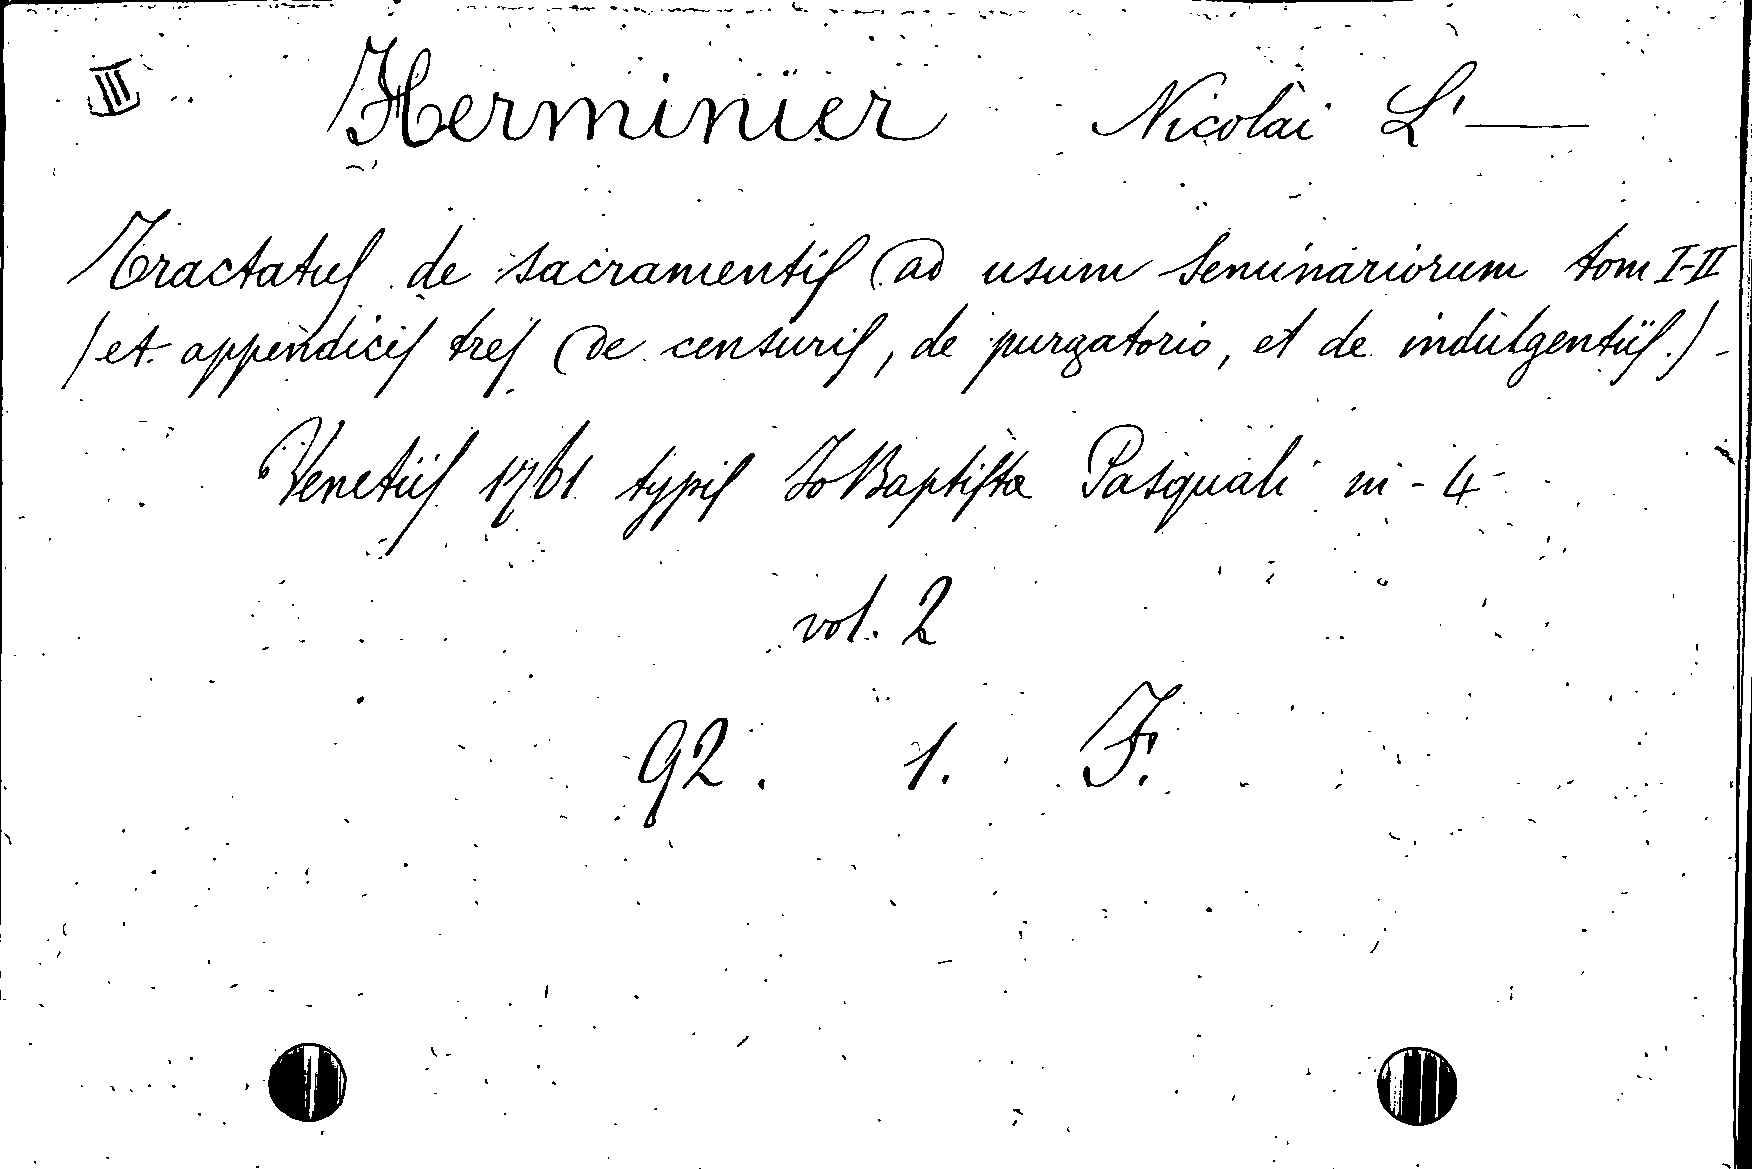 III Herminier Nicolai L' —
Tractatus de sacramentis (ad usum Seminariorum tom I-II
(et appendicis tres (de censuris, de purgatorio, et de indulgentiis.) -
Venetiis 1761 typis Jo Baptista Pasquali in - 4
vol. 2
92. 1. F.